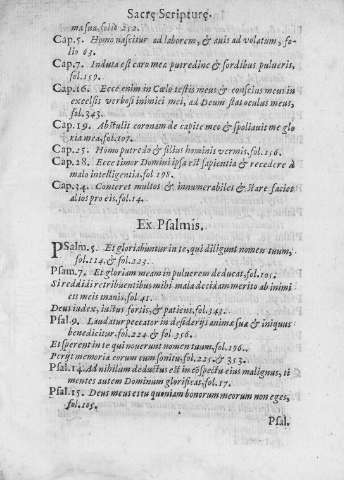 Sacrę Scripturę.
ma sua. folio 252.
Cap. 5. Homo nascitur ad laborem, & auis ad volatum, fo-
lio 63.
Cap. 7. Induta est caro mea putredine & sordibus pulueris,
fol. 159.
Cap. 16. Ecce enim in Cœlo testis meus & conscius meus in
excelsis verbosi inimici mei, ad Deum stat oculus meus,
fol. 343.
Cap. 19. Abstulit coronam de capite meo & spoliauit me glo
ria mea. fol. 107.
Cap. 25. Homo putredo & filius hominis vermis. fol. 156.
Cap. 28. Ecce timor Domini ipsa est sapientia & recedere à
malo intelligentia. fol 198.
Cap. 34. Conteret multos & innumerabiles & stare faciet
alios pro eis. fol. 14.
Ex Psalmis.
PSalm. 5. Et gloriabuntur in te, qui diligunt nomen tuum,
fol. 114. & fol. 223.
Psam. 7. Et gloriam meam in puluerem deducat, fol. 101.
Si reddidi retribuentibus mihi mala decidam merito ab inimi
cis meis inanis, fol. 41.
Deus iudex, iustus fortis, & patiens. fol. 343.
Psal 9. Laudatur peccator in desiderijs animæ suæ & iniquus
benedicitur. fol. 224. & fol. 356.
Et sperent in te qui nouerunt nomen tuum. fol. 196.
Perijt memoria eorum cum sonitu, fol. 225. & 353.
Psal. 14. Ad nihilum deductus est in cõspectu eius malignus, ti
mentes autem Dominum glorificat, fol. 17.
Psal. 15. Deus meus es tu quoniam bonorum meorum non eges,
fol. 105.
Psal.